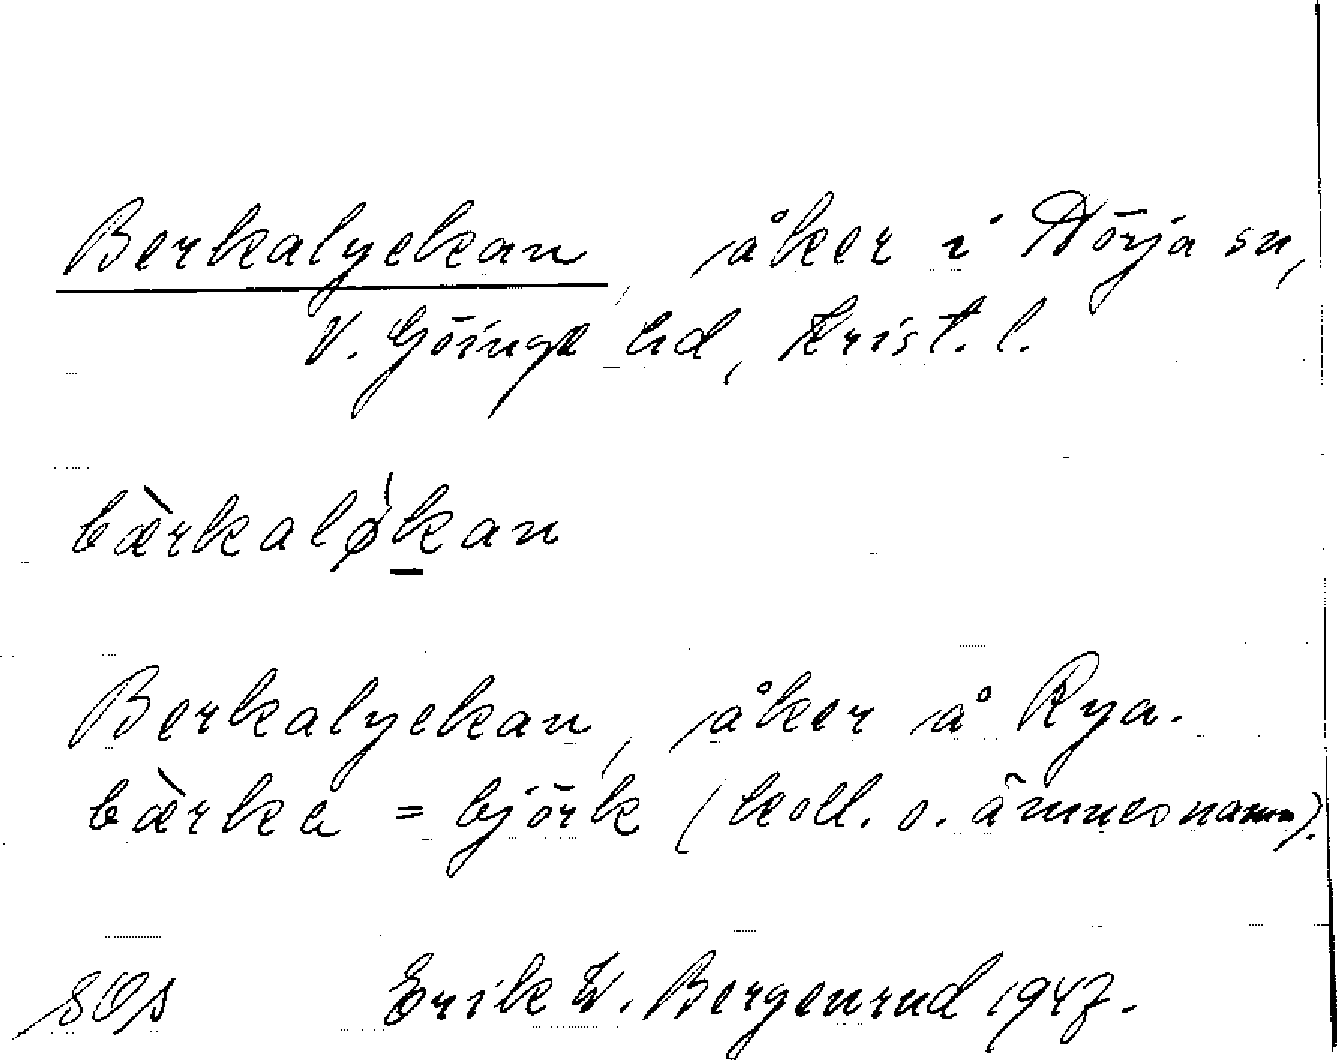 Berkalyckan, åker i Nörja sn,
V. Göinge hd, Krist. l.
bæ̀rkalø̍kan
Berkalyckan, åker å Rya.
bæ̀rka = björk (koll. o. ämnesnamn).
Erik W. Bergenrud 1947.